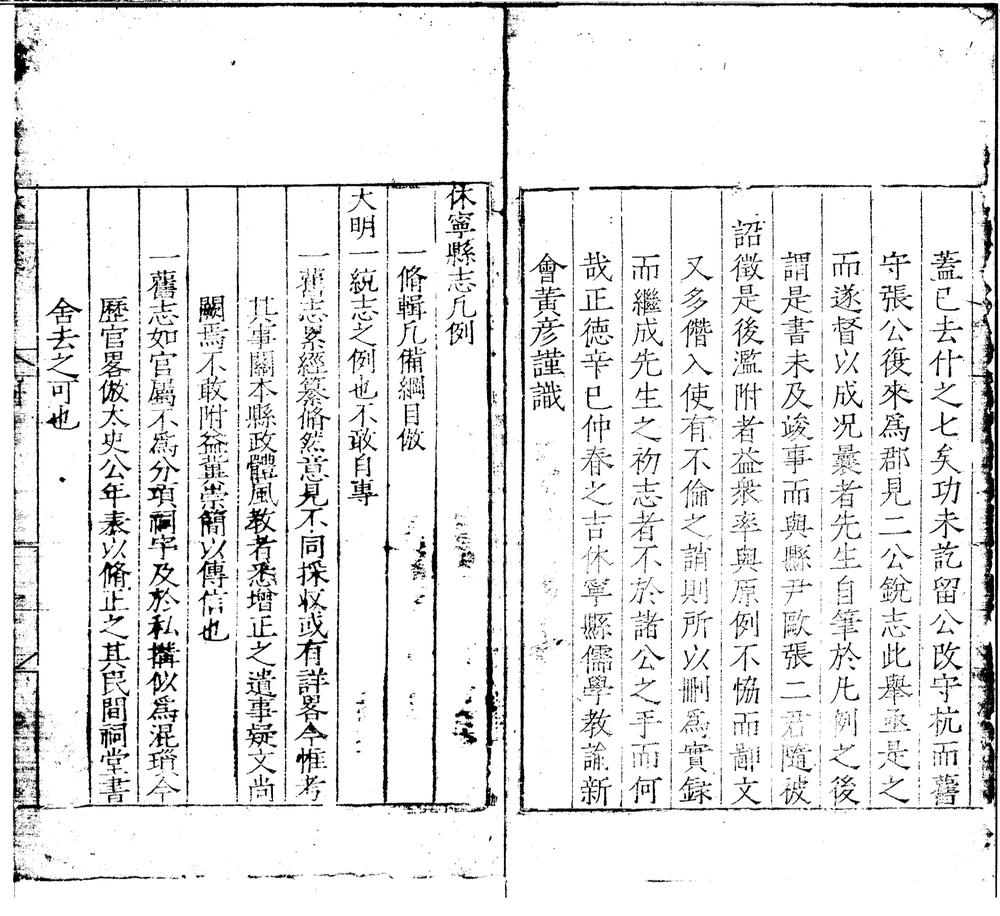 蓋已去什之七矣功未訖留公改守杭而舊
守張公復來爲郡見二公銳志此舉亟是之
而遂督以成况曩者先生自筆於凡例之後
謂是書未及竣事而與縣尹歐張二君隨被
詔徵是後濫附者益衆率與原例不恊而鄙文
又多僭入使有不倫之誚則所以刪爲實録
而繼成先生之初志者不於諸公之手而何
哉正德辛巳仲春之吉休寧縣儒學教諭新
會黃彦謹識
休寧縣志凡例
一脩輯凡備綱目倣
大明一統志之例也不敢自專
一舊志累經纂脩然意見不同採収或有詳畧今惟考
其事關本縣政體風教者悉增正之遺事疑文尚
闕焉不敢附益冀崇簡以傳信也
一舊志如官屬不爲分項祠宇及於私搆似爲混瑣今
歷官畧倣太史公年表以脩正之其民間祠堂書
舍去之可也